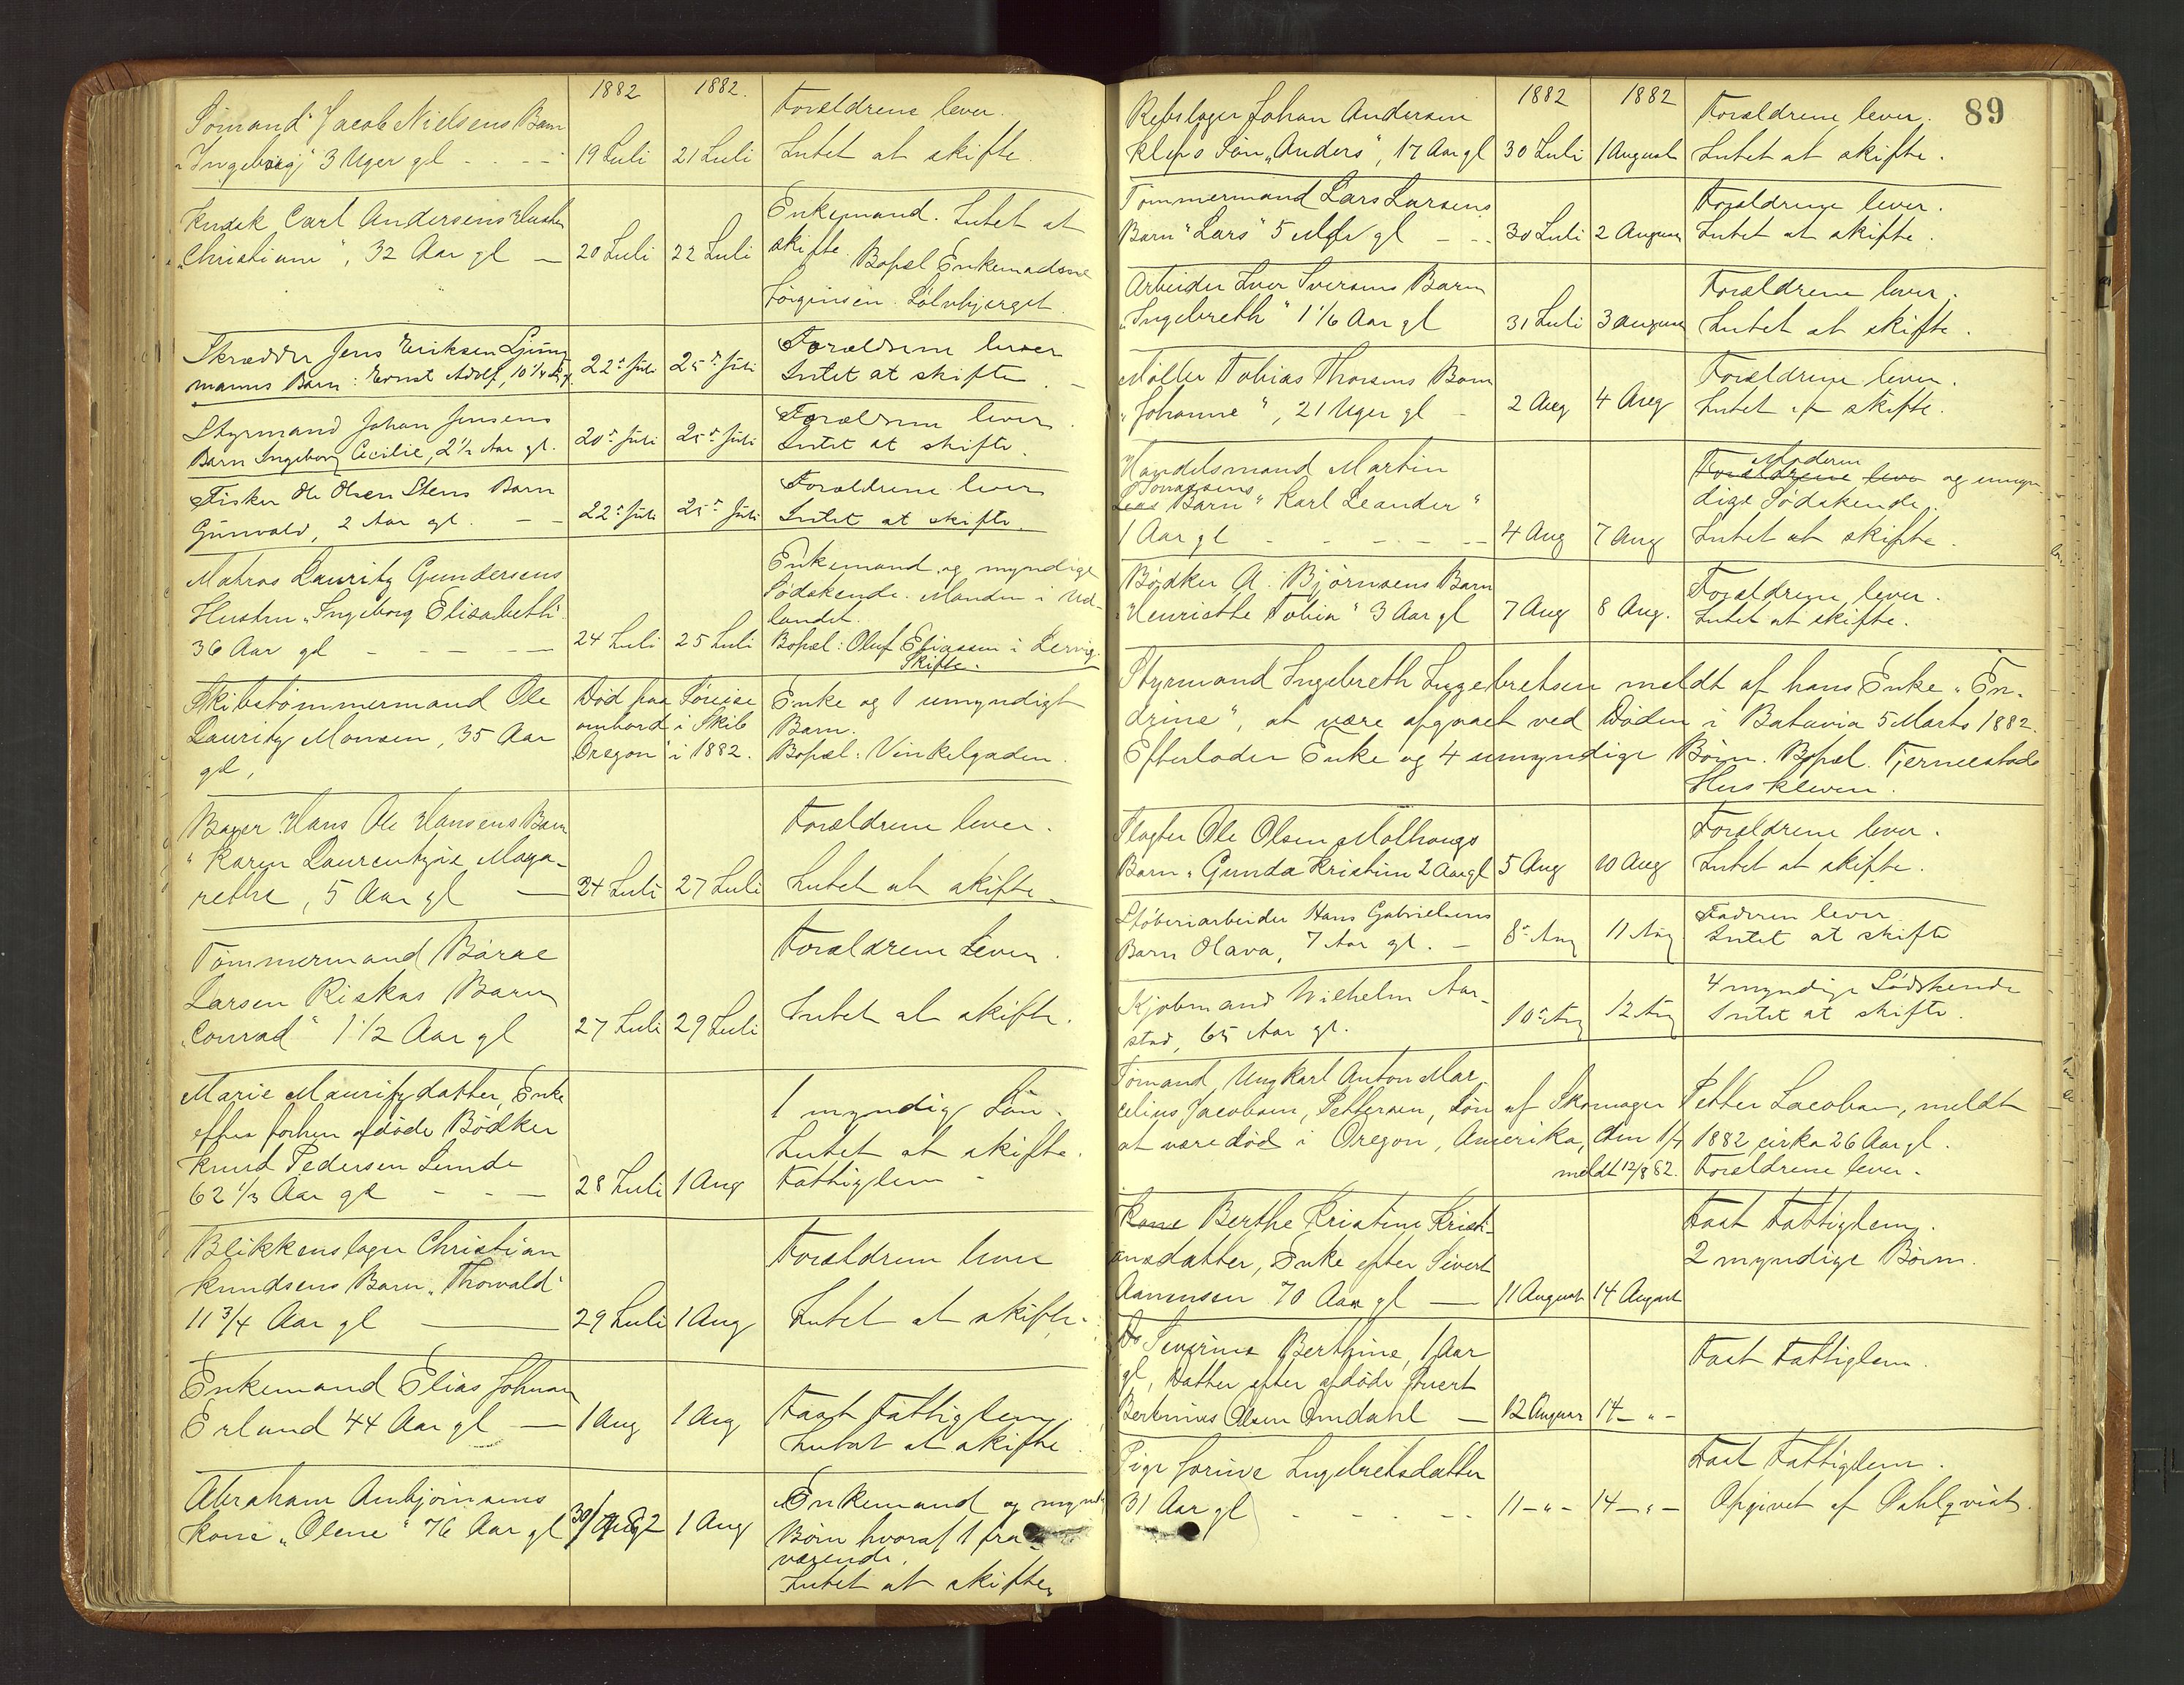 1882 1882.
Sömand Jacob Nielsens Barn Forældrene lever.
"Ingeborg" 3 Uger gl - - - 19 Juli 21 Juli Intet at skifte.
Kudsk Carl Andersens Hustru Enkemand. Intet at
"Christiane", 32 Aar gl — 20 Juli 22 Juli skifte. Bopæl Enkemadame
Jörginsen Sölvbjerget.
Skrædder Jens Eriksen Ljung- Forældrene lever
manns Barn: Ernst Adolf, 10 1/4 22de Juli 25de Juli Intet at skifte. -
Styrmand Johan Jensens Forældrene lever
Barn Ingeborg Cecilie, 2 1/2 Aar gl. 20de Juli 25de Juli Intet at skifte.
Fisker Ole Olsen Stens Barn Forældrene lever
Gunvald, 2 Aar gl. - - 22de Juli 25de Juli Intet at skifte.
Matros Lauritz Gundersens Enkemand og myndige
Hustru "Ingeborg Elisabeth" Södskende. Manden i Ud-
landet.
36 Aar gl - - - - 24 Juli 25 Juli Bopæl: Oluf Eliassen i Lervig.
Skifte.
Skibstömmermand Ole Död paa Söreise Enke og 1 umyndigt
Lauritz Monsen, 35 Aar ombord i Skib Barn.
gl, "Oregon" i 1882. Bopæl: Vinkelgaden.
Bager Hans Ole Hansens Barn Forældrene lever.
"Karen Laurentzie Maga-
rethe, 5 Aar gl — 24 Juli 27 Juli Intet at skifte.
Tömmermand Börre Forældrene Lever.
Larsen Riskas Barn
"Conrad" 1 1/2 Aar gl 27 Juli 29 Juli Intet at skifte.
Marie Mauritzdatter, Enke 1 myndig Sön.
efter forhen afdöde Bödker Intet at skifte.
Knud Pedersen Lunde Fattiglem -
62 1/3 Aar gl - - - 28 Juli 1 Aug
Blikkenslager Christian Forældrene lever
Knudsens Barn "Thorvald"
11 3/4 Aar gl — 29 Juli 1 Aug Intet at skifte.
Enkemand Elias Johnsen Fast Fattiglem.
Erland 44 Aar gl — 1 Aug 1 Aug Intet at skifte
Abraham Anbjörnsens Enkemand og mynd
Kone "Olene" 76 Aar gl 30/7 82 1 Aug Börn hvoraf 1 fra-
værende.
Intet at skifte.
89
1882 1882
Rebslager Johan Andersen Forældrene lever.
Kleps Sön "Anders", 17 Aar gl 30 Juli 1 August Intet at skifte.
Tömmermand Lars Larsens Forældrene lever.
Barn "Lars" 5 Mdr gl - - 30 Juli 2 August Intet at skifte.
Arbeider Iver Iversens Barn Forældrene lever.
"Ingebreth" 1 1/6 Aar gl 31 Juli 3 August Intet at skifte.
Möller Tobias Thorsens Barn Forældrene lever.
"Johanne", 21 Uger gl - 2 Aug 4 Aug Intet at skifte.
Handelsmand Martin Moderen
Tonnessens Forældrene lever og umyn-
Barn "Karl Leander" dige Södskende.
1 Aar gl - - - - - 4 Aug 7 Aug Intet at skifte.
Bödker A. Björnsens Barn Forældrene lever.
"Henriette Tobia" 3 Aar gl 7 Aug 8 Aug. Intet at skifte.
Styrmand Ingebreth Ingebretsen meldt af hans Enke "En-
drine", at være afgaaet ved Döden i Batavia 5 Marts 1882.
Efterlader Enke og 4 umyndige Börn. Bopæl. Tjernestads
Hus Kleven.
Slagter Ole Olsen Molhougs Forældrene lever.
Barn "Gunda Kristine 2 Aar gl 5 Aug 10 Aug Intet at skifte.
Stöberiarbeider Hans Gabrielsens Faderen lever
Barn Olava, 7 Aar gl. - 8de Aug 11 Aug Intet at skifte
Kjöbmand Wilhelm Aar- 4 myndige Södskende
stad, 65 Aar gl. 10de Aug 12 Aug Intet at skifte.
Sömand, Ungkarl Anton Mar-
celius Jacobsen, Pettersen, Sön af Skomager Petter Jacobsen, meldt
at være död i Oregon, Amerika, den 1/7 1882 cirka 26 Aar gl.
meldt 12/8 82. Forældrene lever.
Kone Berthe Kristine Kristi- Fast Fattiglem.
ansdatter, Enke efter Sivert 2 myndige Börn.
Aanensen 70 Aar gl — 11 August 14 August
Severine Berthine, 1 Aar Fast Fattiglem.
gl, Datter efter afdöde Sivert
Bertinius Olsen Omdahl — 12 August 14 - " -
Pige Jorine Ingebretsdatter Fast Fattiglem.
31 Aar gl - - - - 11 - " - 14 - " - Opgivet af Dahlqvist.